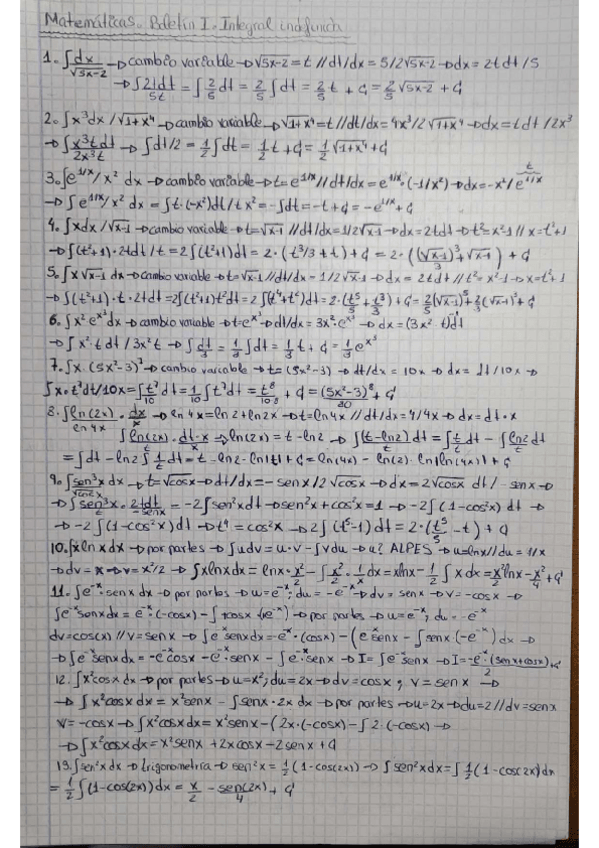 Matemáticas. Boletín I. Integral indefinida
1. ∫dx/√5x-2 → cambio variable → √5x-2 = t // dt/dx = 5/2√5x-2 → dx = 2t dt/5
→ ∫2tdt/5t = ∫2/5 dt = 2/5 ∫dt = 2/5 t + C = 2/5 √5x-2 + C
2. ∫x³dx/√1+x⁴ → cambio variable → √1+x⁴ = t // dt/dx = 4x³/2√1+x⁴ → dx = t dt/2x³
→ ∫x³t dt/2x³t → ∫dt/2 = 1/2 ∫dt = 1/2 t + C = 1/2 √1+x⁴ + C
3. ∫e^1/x/x² dx → cambio variable → t = e^1/x // dt/dx = e^1/x · (-1/x²) → dx = -x²/e^1/x
→ ∫e^1/x/x² dx = ∫t·(-x²)dt/t x² = -∫dt = -t + C = -e^1/x + C
4. ∫xdx/√x-1 → cambio variable → t = √x-1 // dt/dx = 1/2√x-1 → dx = 2tdt → t² = x-1 // x = t²+1
→ ∫(t²+1)·2tdt/t = 2∫(t²+1)dt = 2·(t³/3 + t) + C = 2·((√x-1)³/3 + √x-1) + C
5. ∫x√x-1 dx → cambio variable → t = √x-1 // dt/dx = 1/2√x-1 → dx = 2tdt // t² = x²-1 → x = t²+1
→ ∫(t²+1)·t·2tdt = 2∫(t²+1)t²dt = 2∫(t⁴+t²)dt = 2·(t⁵/5 + t³/3) + C = 2/5(√x-1)⁵ + 2/3(√x-1)³ + C
6. ∫x²e^x³dx → cambio variable → t = e^x³ → dt/dx = 3x²·e^x³ → dx = (3x²·t)⁻¹dt
→ ∫x²·t dt/3x²t → ∫dt/3 = 1/3 ∫dt = 1/3 t + C = 1/3 e^x³
7. ∫x·(5x²-3)⁷ → cambio variable → t = (5x²-3) → dt/dx = 10x → dx = dt/10x →
∫x·t⁷dt/10x = ∫t⁷/10 dt = 1/10 ∫t⁷dt = t⁸/10·8 + C = (5x²-3)⁸/80 + C
8. ∫ln(2x)/ln 4x · dx/x → ln 4x = ln2 + ln2x → t = ln4x // dt/dx = 4/4x → dx = dt·x
∫ln(2x)/t · dt·x/x → ln(2x) = t - ln2 → ∫(t-ln2)/t dt = ∫t/t dt - ∫ln2/t dt
= ∫dt - ln2 ∫1/t dt = t - ln2 · ln|t| + C = ln(4x) - ln(2)·ln|ln(4x)| + C
9. ∫sen³x/√cosx dx → t = √cosx → dt/dx = -senx/2√cosx → dx = 2√cosx dt/-senx →
→ ∫sen³x/t · 2tdt/-senx = -2∫sen²xdt → sen²x + cos²x = 1 → -2∫(1-cos²x)dt →
→ -2∫(1-cos²x)dt → t⁴ = cos²x → 2∫(t⁴-1)dt = 2·(t⁵/5 - t) + C
10. ∫xlnxdx → por partes → ∫udv = u·v - ∫vdu → u? ALPES → u=lnx // du = 1/x
→ dv = x → v = x²/2 → ∫xlnxdx = lnx·x²/2 - ∫x²/2 · 1/x dx = xlnx - 1/2 ∫xdx = x²/2 lnx - x²/4 + C
11. ∫e⁻ˣ·senxdx → por partes → u = e⁻ˣ; du = -e⁻ˣ → dv = senx → v = -cosx →
∫e⁻ˣsenxdx = e⁻ˣ·(-cosx) - ∫-cosx(-e⁻ˣ) → por partes → u = e⁻ˣ, du = -e⁻ˣ
dv = cos(x) // v = senx → ∫e⁻ˣsenxdx = -e⁻ˣ·(cosx) - (e⁻ˣsenx - ∫senx(-e⁻ˣ)dx →
→ ∫e⁻ˣsenxdx = -e⁻ˣcosx - e⁻ˣsenx - ∫e⁻ˣsenx → I = ∫e⁻ˣsenx → I = -e⁻ˣ·(senx+cosx)/2 + C
12. ∫x²cosxdx → por partes → u = x²; du = 2x → dv = cosx; v = senx →
→ ∫x²cosxdx = x²senx - ∫senx·2xdx → por partes → u = 2x → du = 2 // dv = senx
v = -cosx → ∫x²cosxdx = x²senx - (2x·(-cosx) - ∫2·(-cosx) →
→ ∫x²cosxdx = x²senx + 2xcosx - 2senx + C
19. ∫sen²xdx → trigonometría → sen²x = 1/2 (1-cos(2x)) → ∫sen²xdx = ∫1/2 (1-cos(2x)dx
= 1/2 ∫(1-cos(2x))dx = x/2 - sen(2x)/4 + C